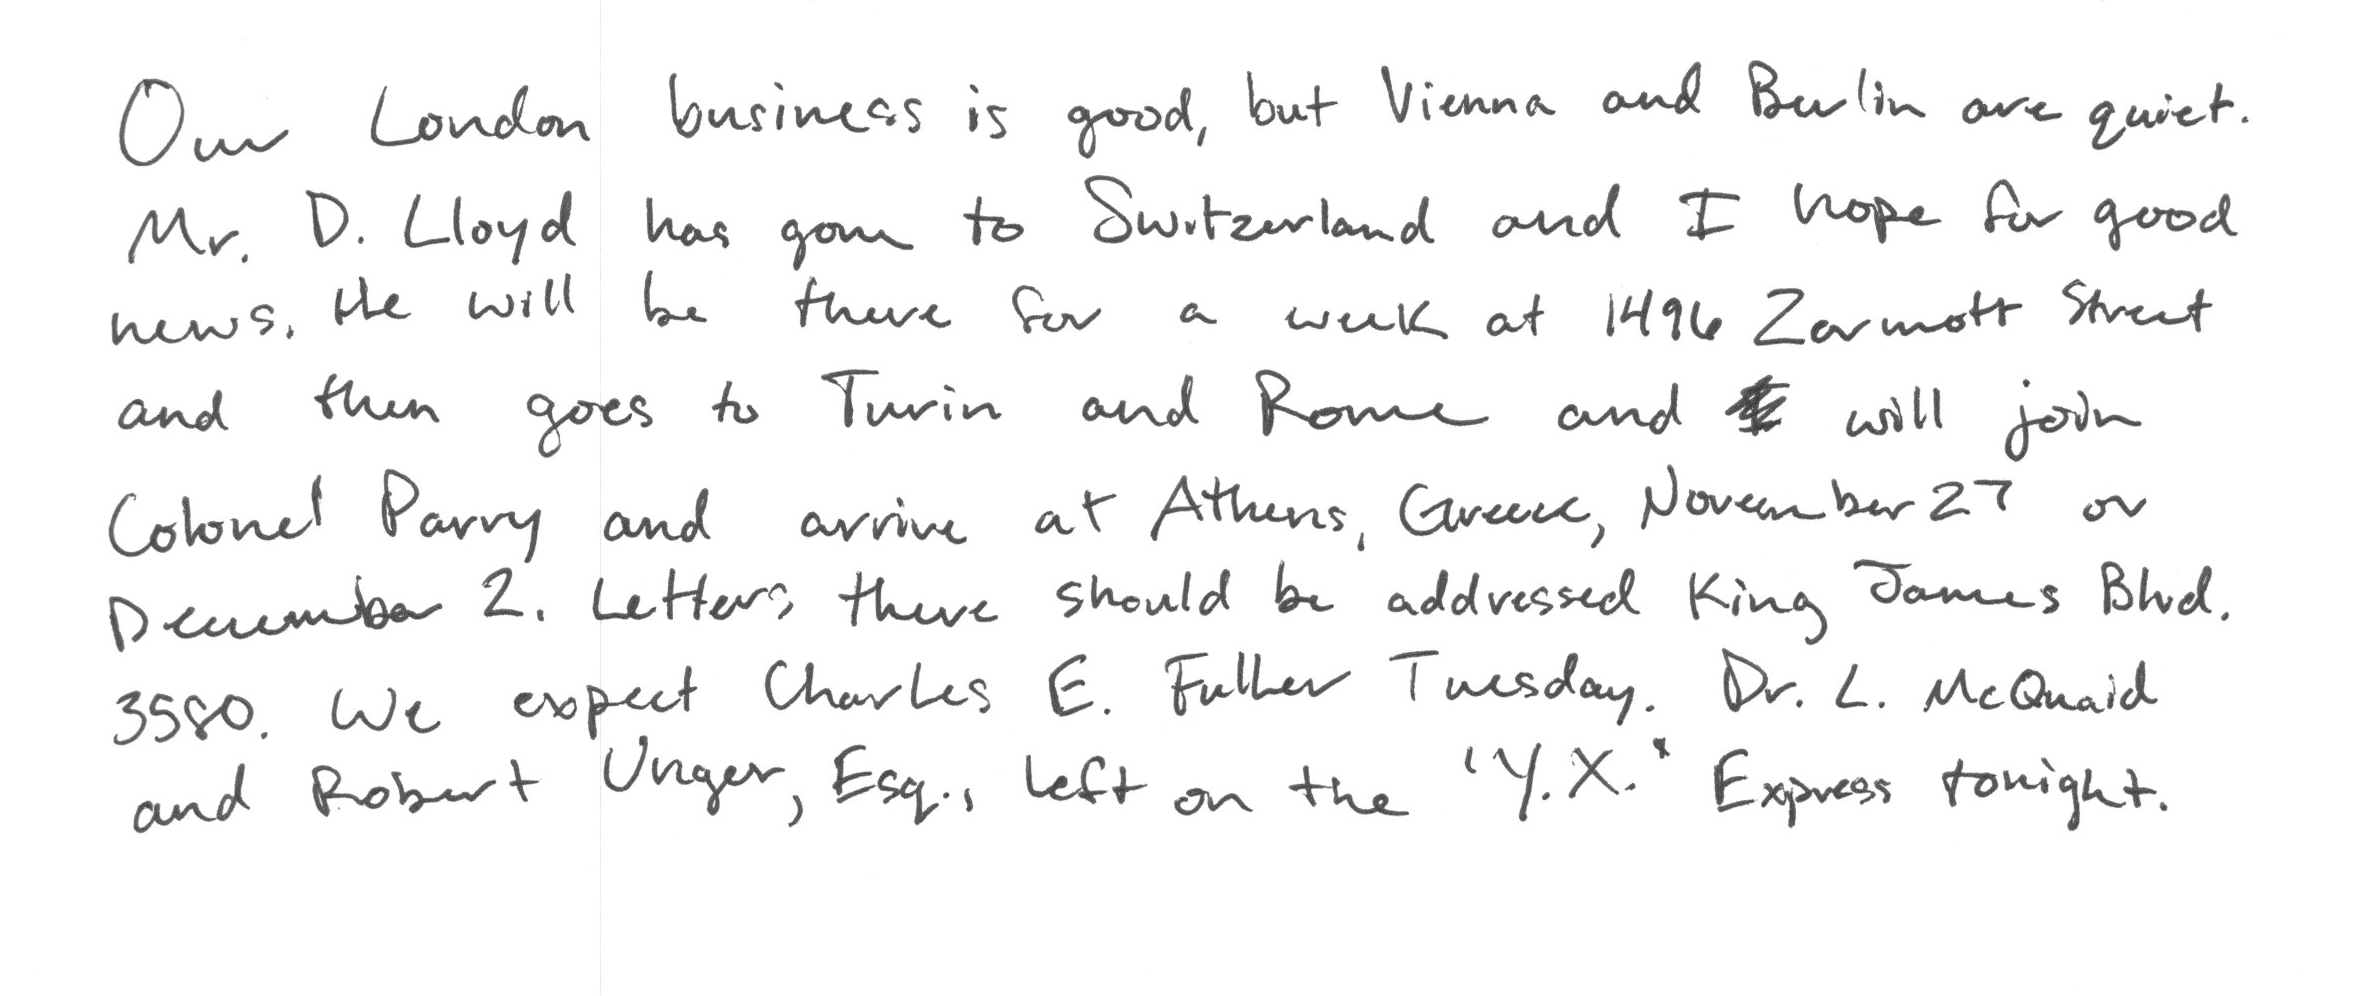 Our London business is good, but Vienna and Berlin are quiet.
Mr. D. Lloyd has gone to Switzerland and I hope for good
news. He will be there for a week at 1496 Zermott Street
and then goes to Turin and Rome and will join
Colonel Parry and arrive at Athens, Greece, November 27 or
December 2. Letters there should be addressed King James Blvd.
3580. We expect Charles E. Fuller Tuesday. Dr. L. McQuaid
and Robert Unger, Esq., left on the "Y.X." Express tonight.